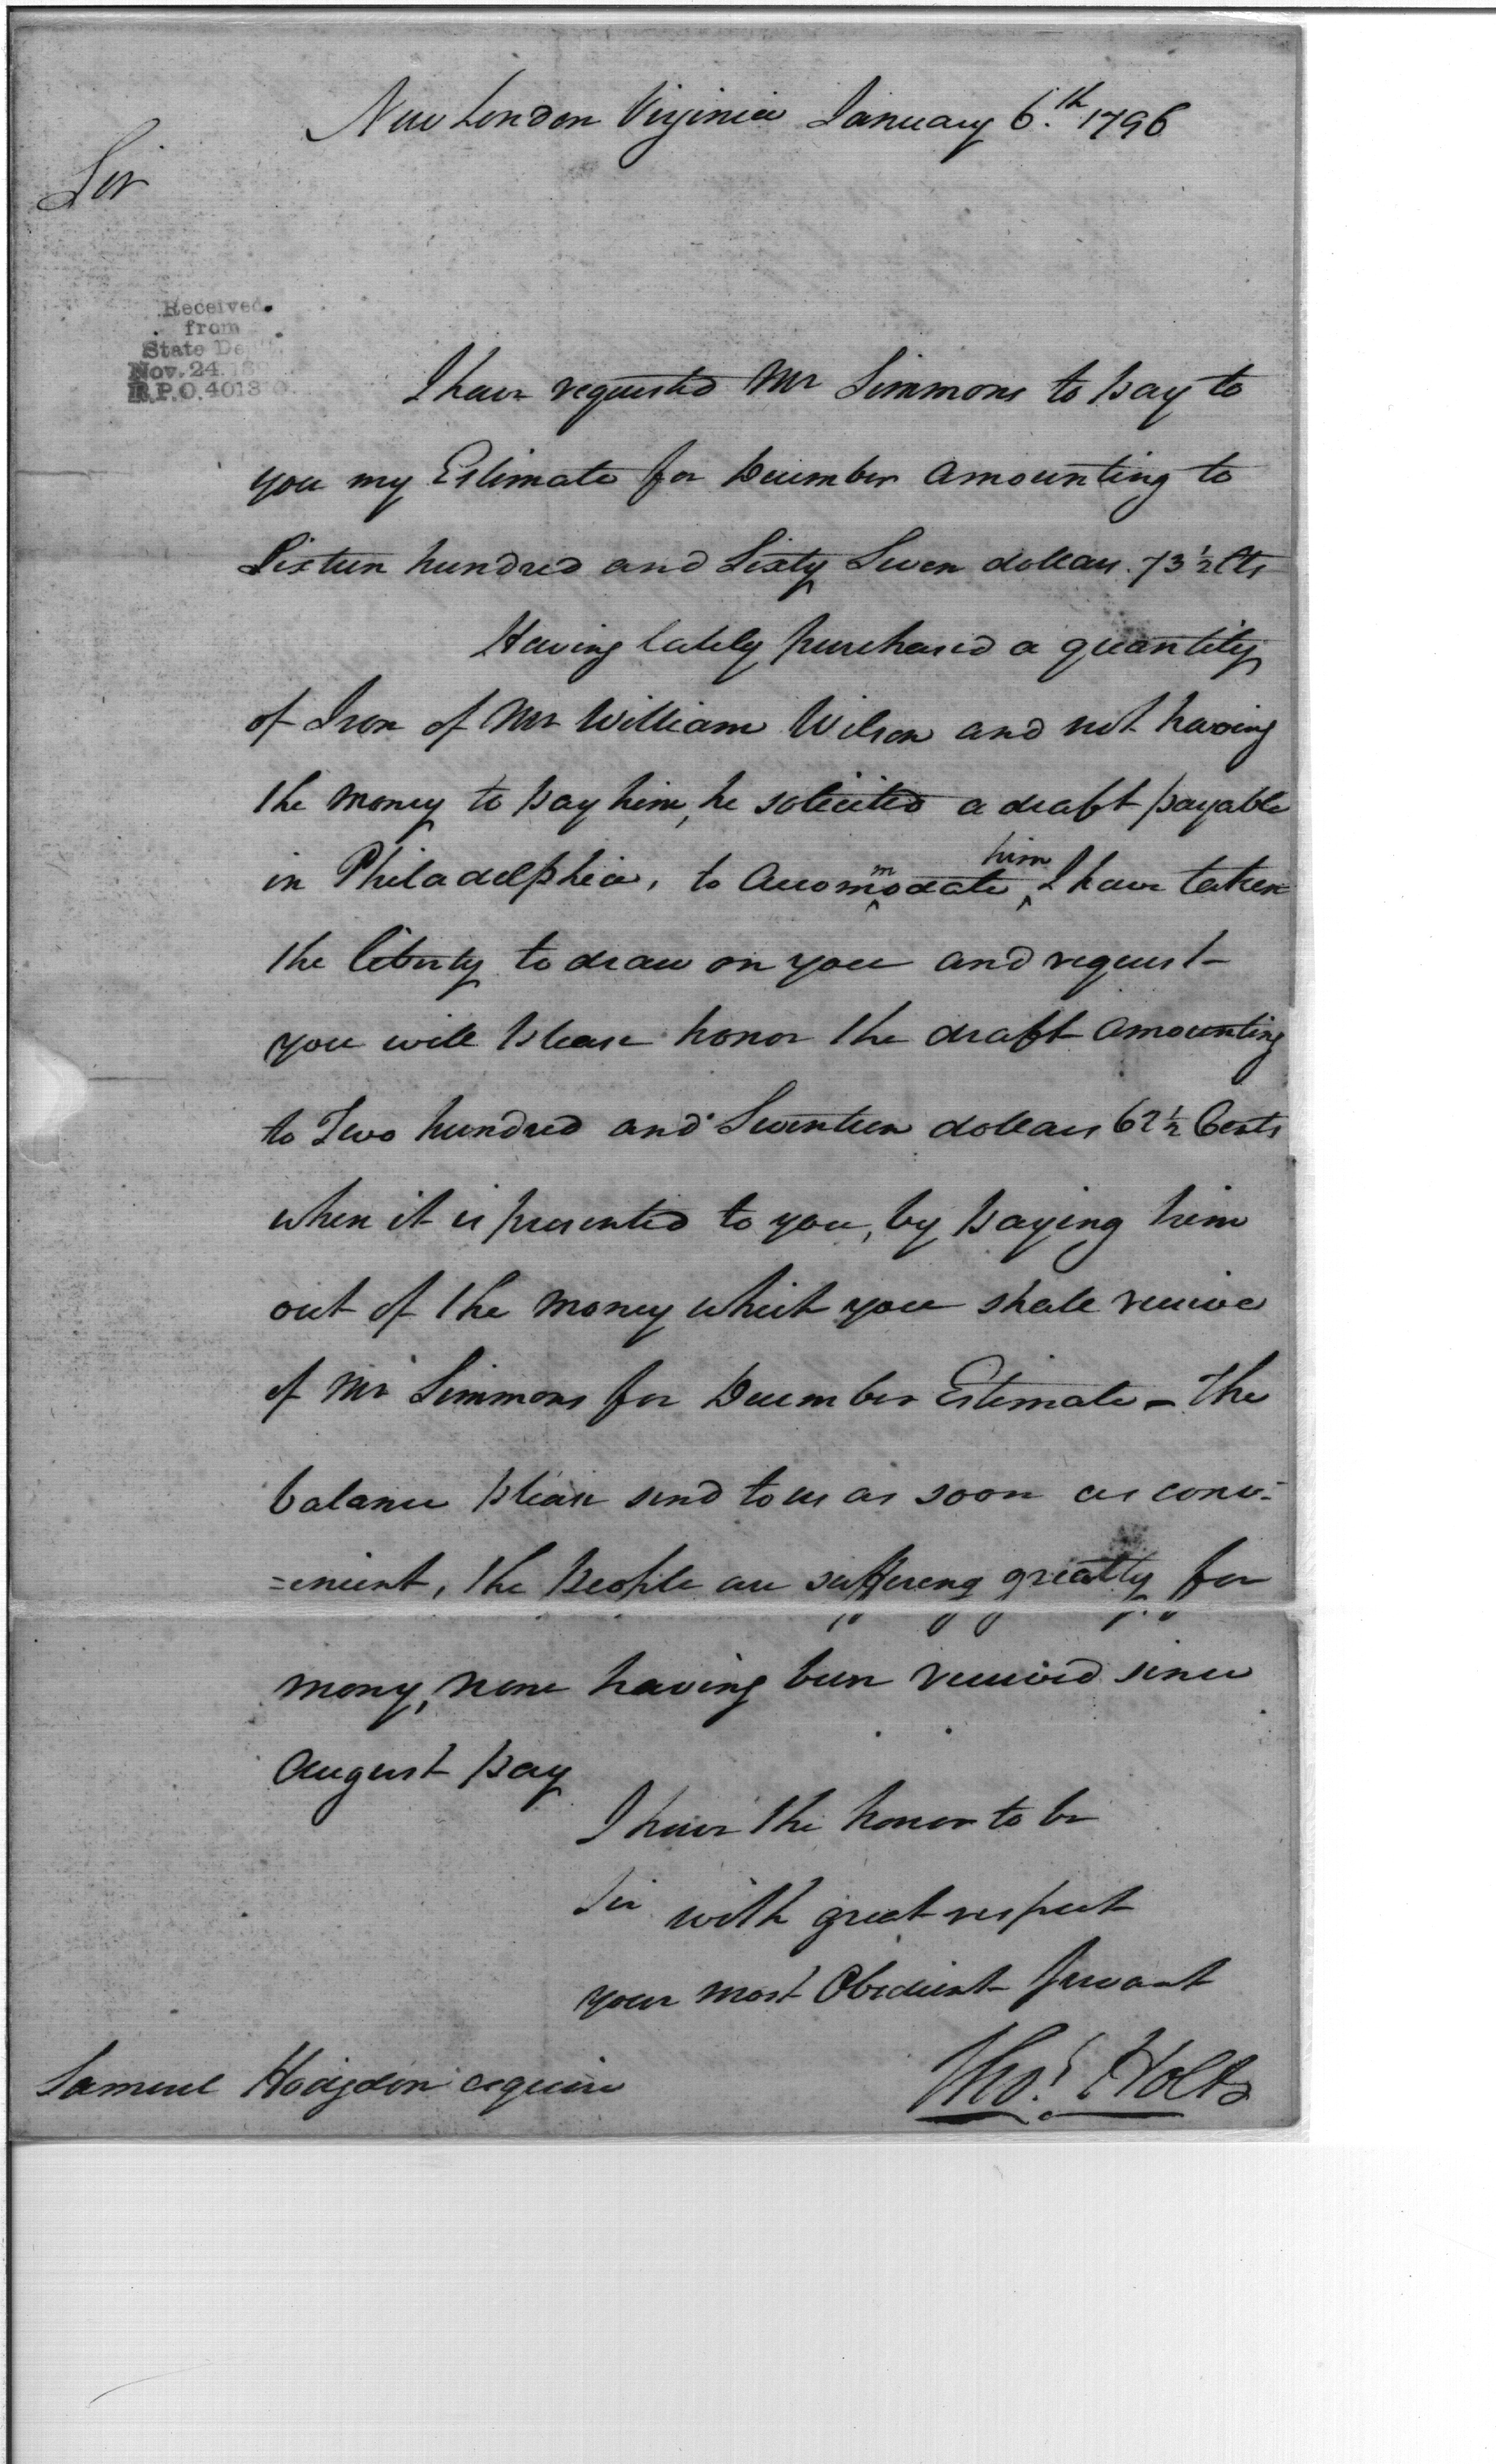 New London Virginia January 6.th 1796
Sir
Received
from
State De
Nov. 24. 18
R.P.O. 4013
I have requested Mr Simmons to pay to
you my Estimate for December amounting to
Sixteen hundred and Sixty Seven dollars. 73 ½ Cts
Having lately purchased a quantity
of Iron of Mr William Wilson and not having
the money to pay him, he solicited a draft payable
in Philadelphia, to accommodate him I have taken
the liberty to draw on you and request
you will please honor the draft amounting
to Two hundred and Seventeen dollars 62 ½ Cents
when it is presented to you, by paying him
out of the money which you shall receive
of Mr Simmons for December Estimate - The
balance please send to us as soon as conv-
=enient, the people are suffering greatly for
mony, none having been received since
August pay
I have the honor to be
Sir with great respect
your most Obedient Servant
Thos. Holt
Samuel Hodgdon esquire